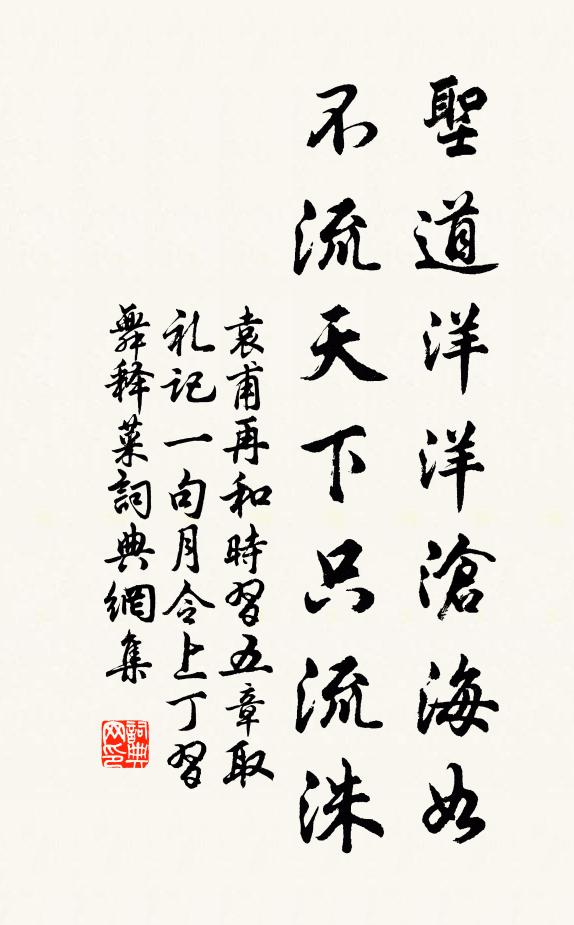 聖道洋洋滄海如
不流天下只流洙
袁甫再和時習五章取
礼記一句月令上丁習
舞釋菜詞典網集
詞典
网印